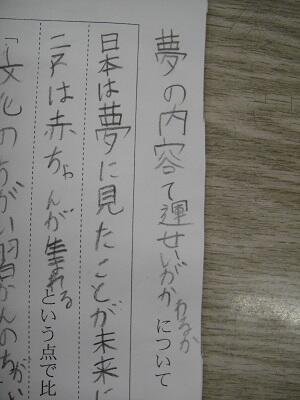 夢の内容で運せいがかわるか について
日本は夢に見たことが未来に
は赤ちゃんが生まれる という点で比
「文化のちがい習かんのちがい